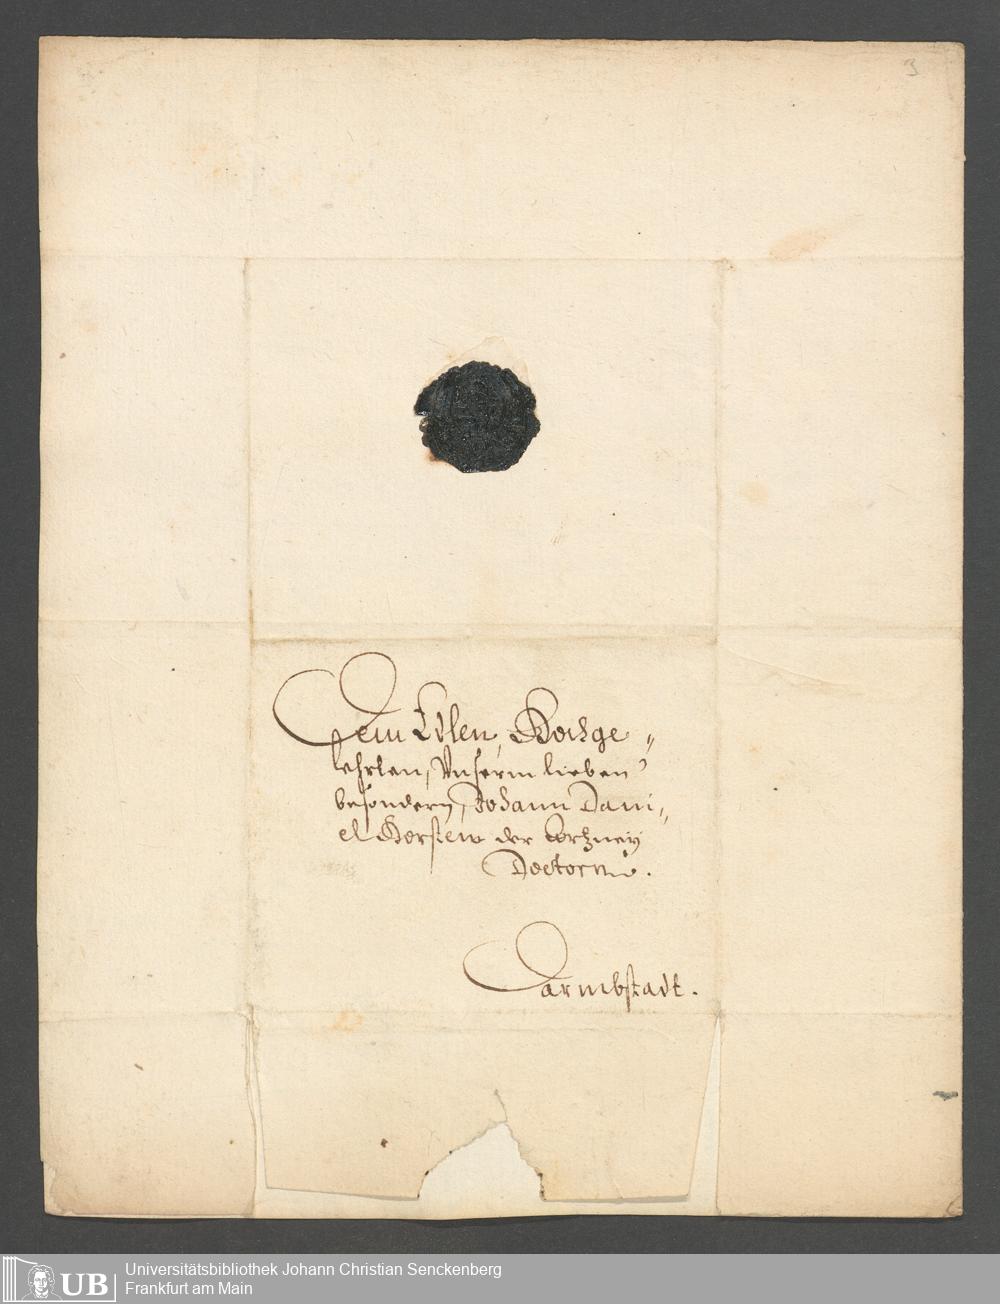 3
Dem Edlen, Hochge„
lehrten, Unserm lieben
besondern, Johann Dani„
el Horsten der Artzney
Doctorn.
Darmbstadt.
UB
Universitätsbibliothek Johann Christian Senckenberg
Frankfurt am Main